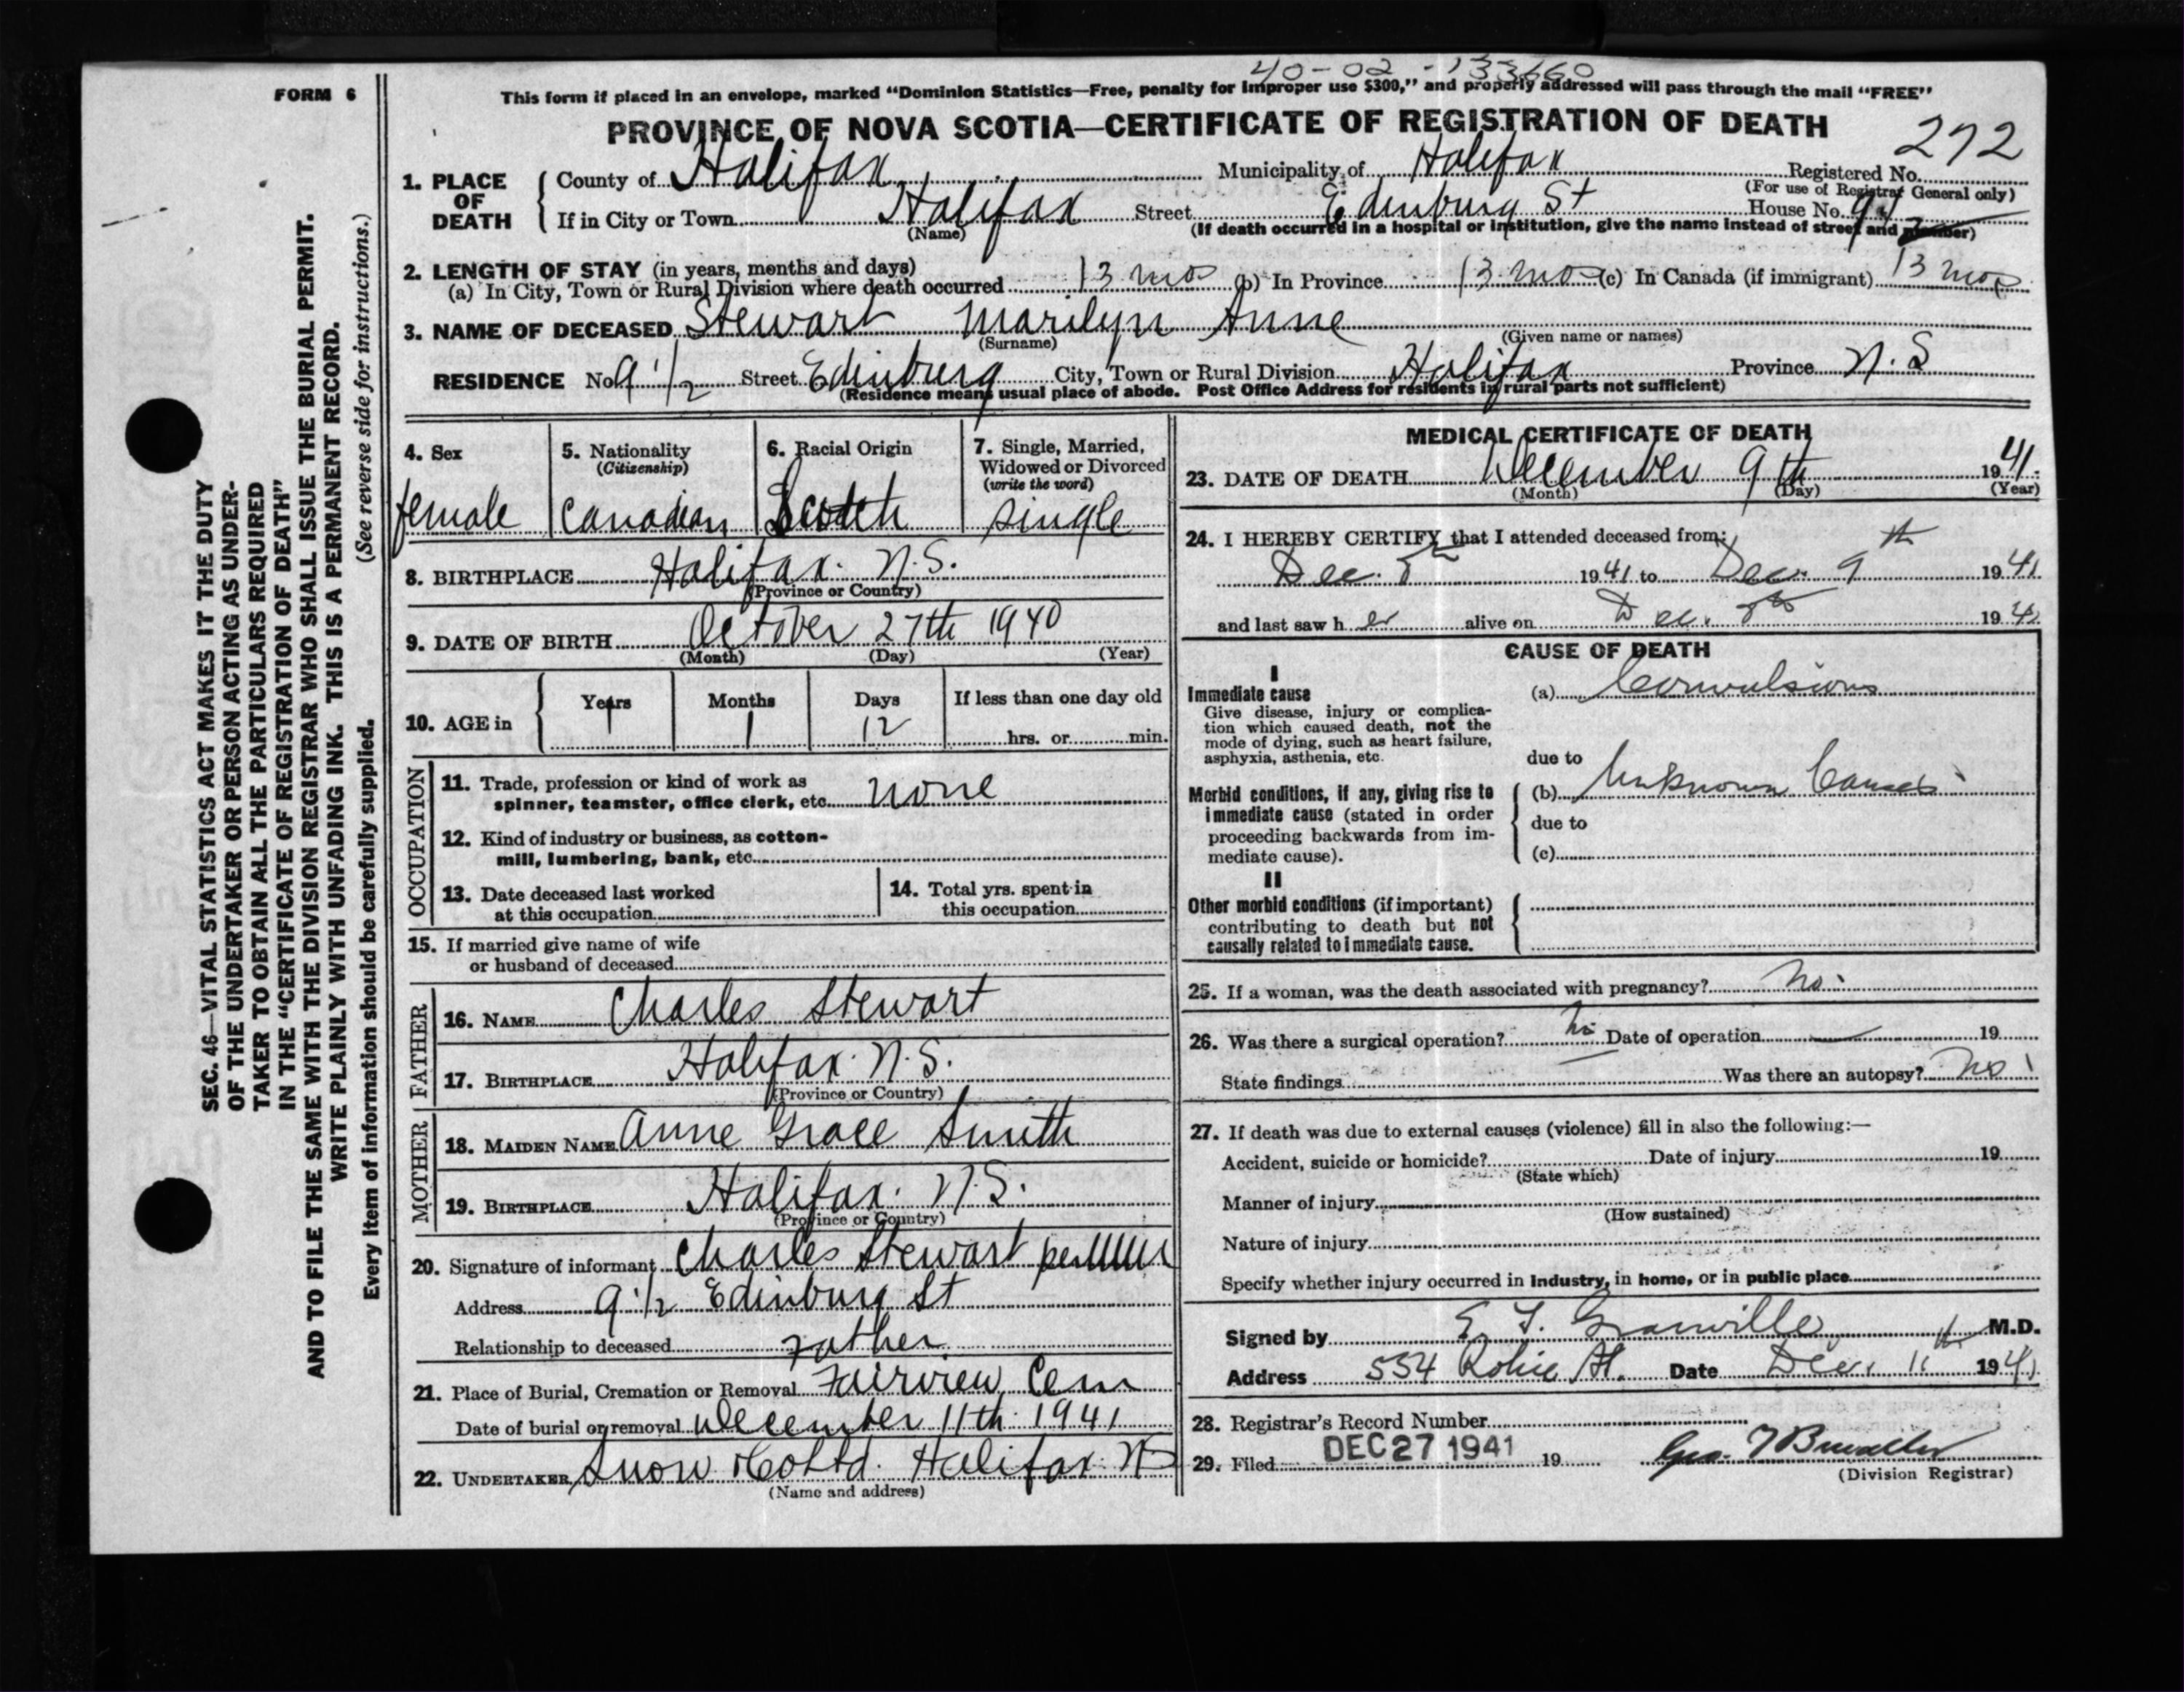 40-02-133660
FORM 6
This form if placed in an envelope, marked "Dominion Statistics—Free, penalty for improper use $300," and properly addressed will pass through the mail "FREE"
PROVINCE OF NOVA SCOTIA—CERTIFICATE OF REGISTRATION OF DEATH
272
1. PLACE OF DEATH
County of Halifax Municipality of Halifax Registered No.
(For use of Registrar General only)
If in City or Town Halifax Street Edinburg St House No. 9 1/2
(Name) (If death occurred in a hospital or institution, give the name instead of street and number)
2. LENGTH OF STAY (in years, months and days)
(a) In City, Town or Rural Division where death occurred 13 mos (b) In Province 13 mos (c) In Canada (if immigrant) 13 mos
3. NAME OF DECEASED Stewart Marilyn Anne
(Surname) (Given name or names)
RESIDENCE No. 9 1/2 Street Edinburg City, Town or Rural Division Halifax Province N.S
(Residence means usual place of abode. Post Office Address for residents in rural parts not sufficient)
4. Sex
female
5. Nationality
(Citizenship)
Canadian
6. Racial Origin
Scotch
7. Single, Married,
Widowed or Divorced
(write the word)
single
8. BIRTHPLACE Halifax. N.S.
(Province or Country)
9. DATE OF BIRTH October 27th 1940
(Month) (Day) (Year)
10. AGE in
Years Months Days If less than one day old
1 1 12 hrs. or min.
OCCUPATION
11. Trade, profession or kind of work as
spinner, teamster, office clerk, etc. none
12. Kind of industry or business, as cotton-
mill, lumbering, bank, etc.
13. Date deceased last worked
at this occupation
14. Total yrs. spent in
this occupation
15. If married give name of wife
or husband of deceased
FATHER
16. NAME Charles Stewart
17. BIRTHPLACE Halifax. N.S.
(Province or Country)
MOTHER
18. MAIDEN NAME Anne Grace Smith
19. BIRTHPLACE Halifax. N.S.
(Province or Country)
20. Signature of informant Charles Stewart
Address 9 1/2 Edinburg St
Relationship to deceased Father
21. Place of Burial, Cremation or Removal Fairview Cem
Date of burial or removal December 11th 1941
22. UNDERTAKER Snow & Co Ltd. Halifax. NS
(Name and address)
MEDICAL CERTIFICATE OF DEATH
23. DATE OF DEATH December 9th 1941
(Month) (Day) (Year)
24. I HEREBY CERTIFY that I attended deceased from:
Dec. 8th 1941 to Dec. 9th 1941
and last saw her alive on Dec. 8th 1941
CAUSE OF DEATH
I
Immediate cause
Give disease, injury or complica-
tion which caused death, not the
mode of dying, such as heart failure,
asphyxia, asthenia, etc.
(a) Convulsions
due to
Morbid conditions, if any, giving rise to
immediate cause (stated in order
proceeding backwards from im-
mediate cause).
(b) Unknown Causes
due to
(c)
II
Other morbid conditions (if important)
contributing to death but not
causally related to immediate cause.
25. If a woman, was the death associated with pregnancy? No.
26. Was there a surgical operation? No Date of operation 19
State findings Was there an autopsy? No
27. If death was due to external causes (violence) fill in also the following:—
Accident, suicide or homicide? Date of injury 19
(State which)
Manner of injury
(How sustained)
Nature of injury
Specify whether injury occurred in industry, in home, or in public place
Signed by E. F. Granville M.D.
Address 554 Robie St. Date Dec. 11th 1941
28. Registrar's Record Number
29. Filed DEC 27 1941 19
(Division Registrar)
SEC. 46—VITAL STATISTICS ACT MAKES IT THE DUTY
OF THE UNDERTAKER OR PERSON ACTING AS UNDER-
TAKER TO OBTAIN ALL THE PARTICULARS REQUIRED
IN THE "CERTIFICATE OF REGISTRATION OF DEATH"
AND TO FILE THE SAME WITH THE DIVISION REGISTRAR WHO SHALL ISSUE THE BURIAL PERMIT.
WRITE PLAINLY WITH UNFADING INK. THIS IS A PERMANENT RECORD.
(See reverse side for instructions.)
Every item of information should be carefully supplied.